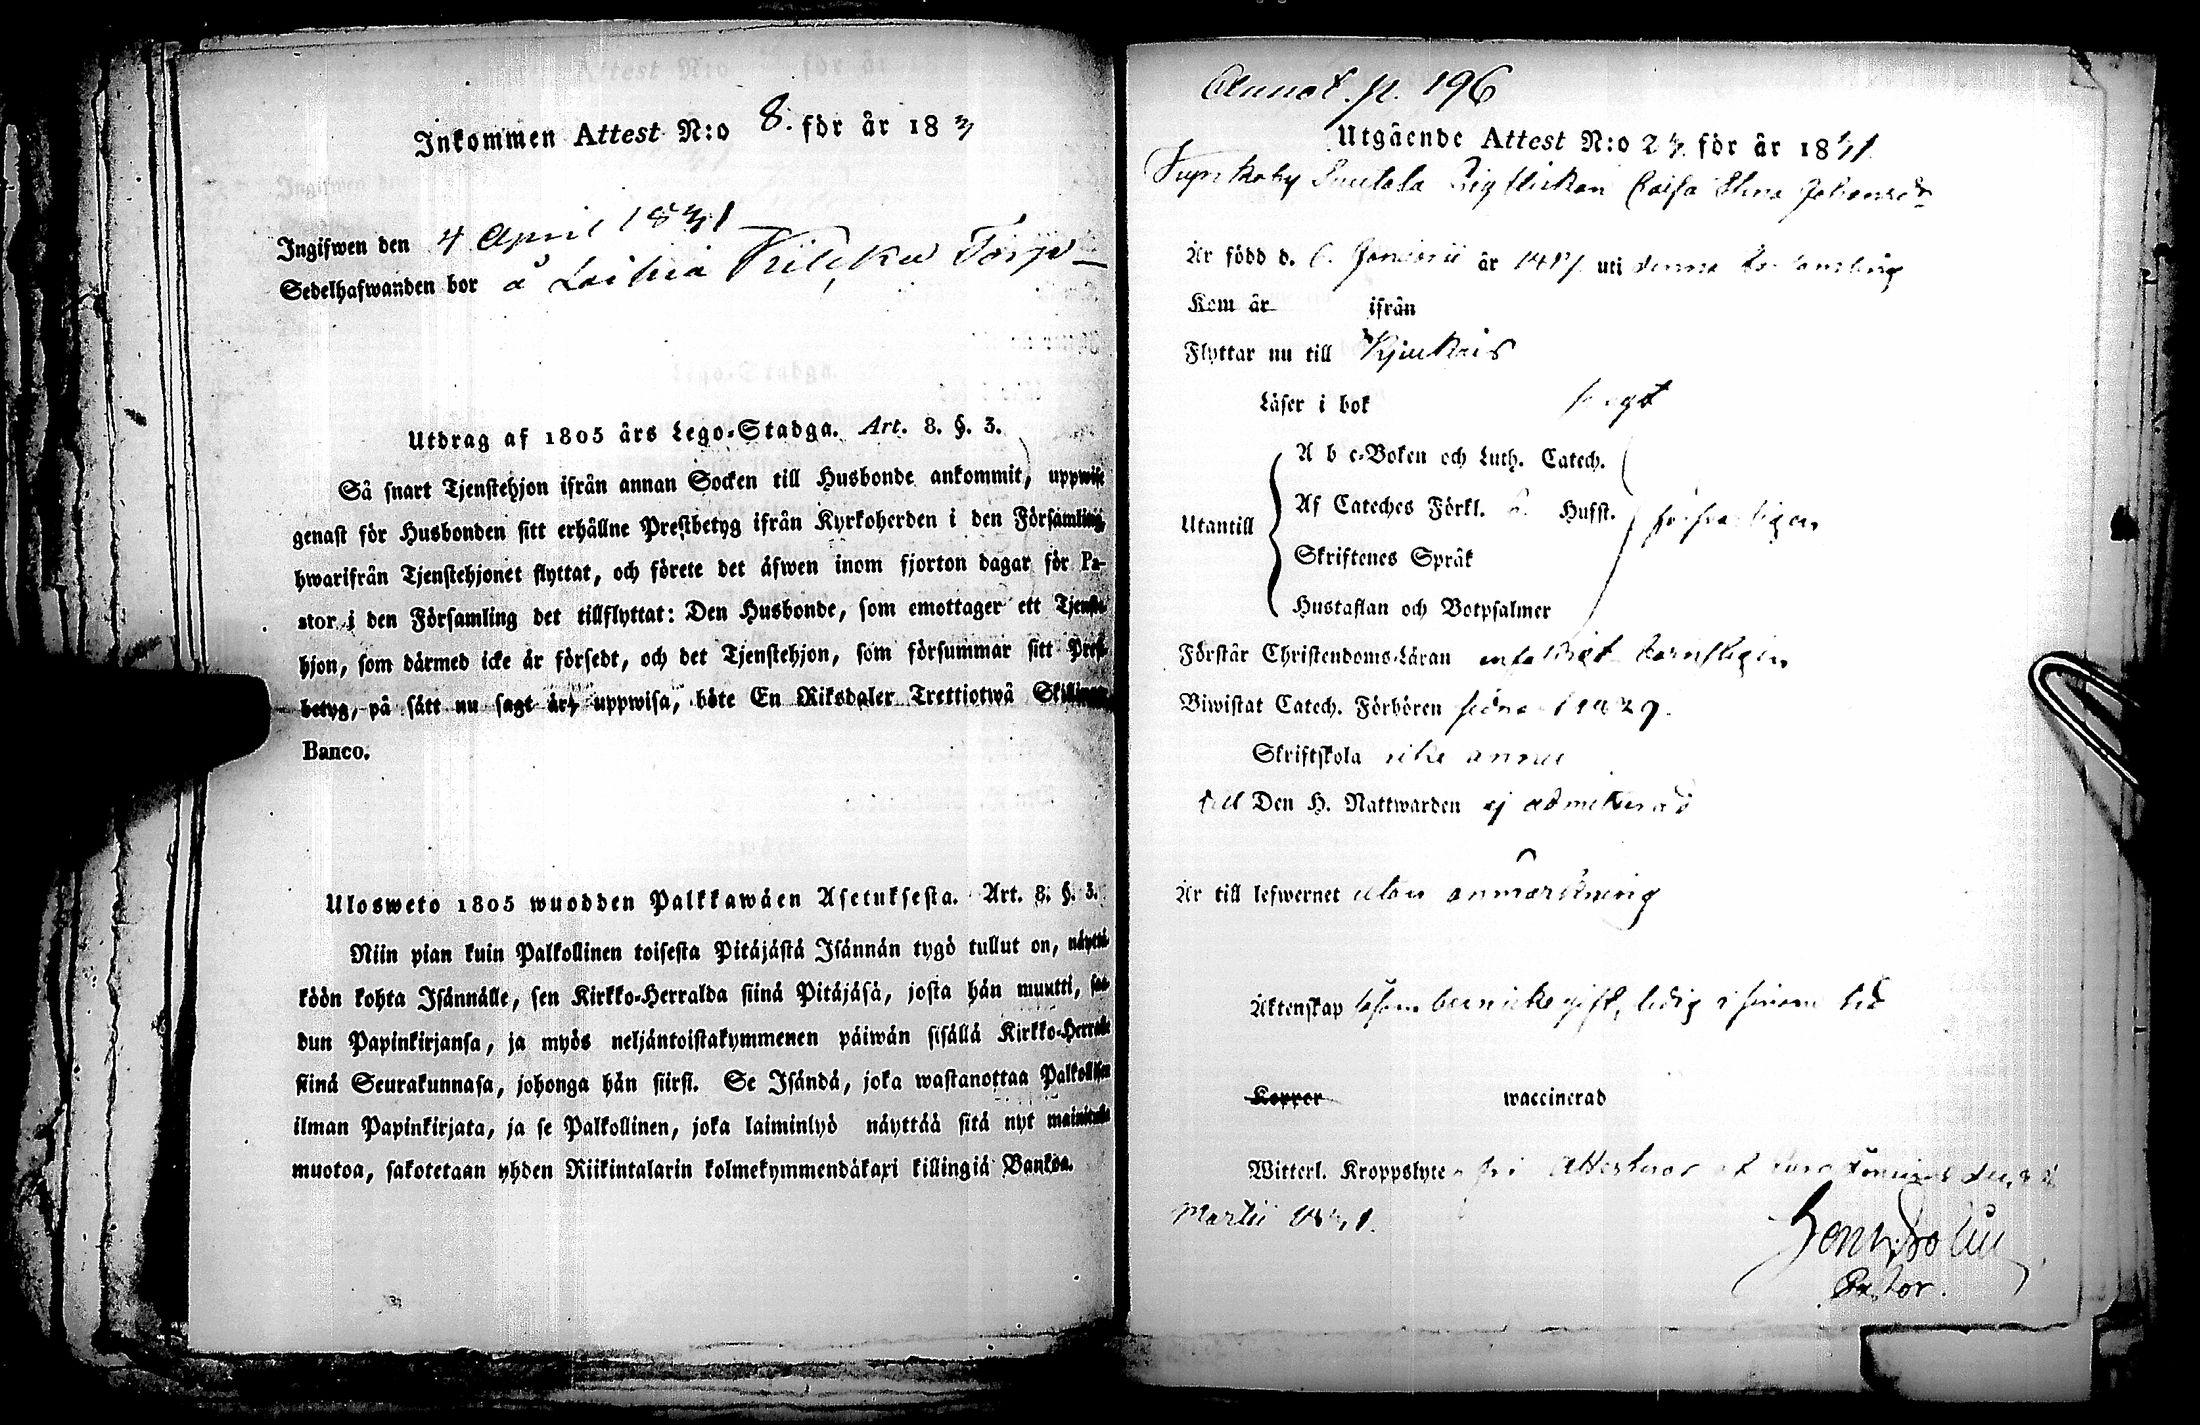 Inkommen Attest N:o 8. för år 183
Ingifwen den 4 April 1831
Sedelhafwanden bor å Loihia Torp
Utdrag af 1805 års Lego-Stadga. Art. 8. §. 3.
Så snart Tjenstehjon ifrån annan Socken till Husbonde ankommit, uppwise
genast för Husbonden sitt erhållne Prestbetyg ifrån Kyrkoherden i den Församling,
hwarifrån Tjenstehjonet flyttat, och förete det åfwen inom fjorton dagar för Pa-
stor i den Församling det tillflyttat: Den Husbonde, som emottager ett Tjenste-
hjon, som därmed icke är försedt, och det Tjenstehjon, som försummar sitt Prest-
betyg, på sätt nu sagt är, uppwisa, böte En Riksdaler Trettiotwå Skillingar
Banco.
Ulosweto 1805 wuodden Palkkawäen Asetuksesta. Art. 8. §. 3.
Niin pian kuin Palkollinen toisesta Pitäjästä Isännän tygö tullut on, näyttä-
köön kohta Isännälle, sen Kirkko-Herralda siinä Pitäjäsä, josta hän muutti, saa-
dun Papinkirjansa, ja myös neljäntoistakymmenen päiwän sisällä Kirkko-Herralle
siinä Seurakunnasa, johonga hän siirsi. Se Isändä, joka wastanottaa Palkollisen
ilman Papinkirjata, ja se Palkollinen, joka laiminlyö näyttää sitä nyt mainitulla
muotoa, sakotetaan yhden Riikintalarin kolmekymmendäkaxi killingiä Bankoa.
Annot. p. 196
Utgående Attest N:o 23. för år 1831.
Caisa Stina Johansdr
Är född d. 6. Januarii år uti denna församling
Kom år ifrån
Flyttar nu till Kjukais
Läser i bok
Utantill
A b c-Boken och Luth. Catech.
Af Cateches Förkl. Husst. försvarligen
Skriftenes Språk
Hustaflan och Botpsalmer
Förstår Christendoms-Läran enfaldigt
Biwistat Catech. Förhören sedan 1829.
Skriftskola icke ännu
till Den H. Nattwarden ej admitterad
Är till lefwernet utan anmärkning
Äktenskap såsom barn icke gift, ledig i sinom tid
Koppor waccinerad
Witterl. Kroppslyte fri Attesteras
Martii 1831.
Pastor.